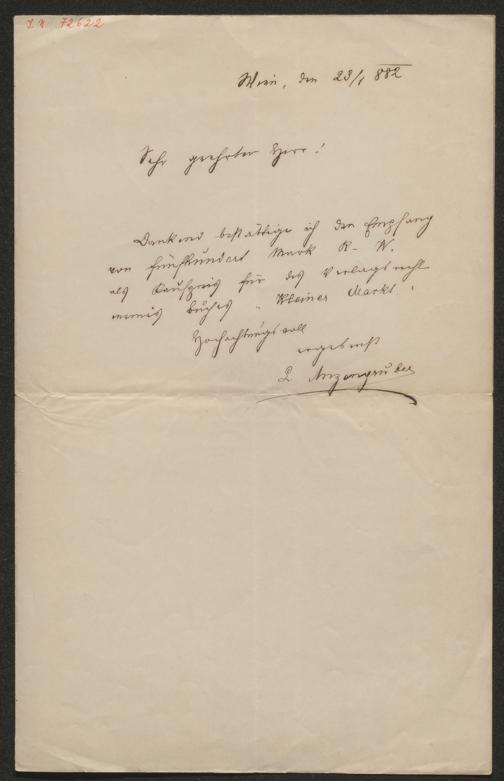 I.N. 72622
Wien, den 23/1 882
Sehr geehrter Herr!
Dankend bestättige ich den Empfang
von fünfhundert Mark R. W.
als Kaufpreis für das Verlagsrecht
meines Buches „Kleiner Markt".
Hochachtungsvoll
ergebenst
L Anzengruber